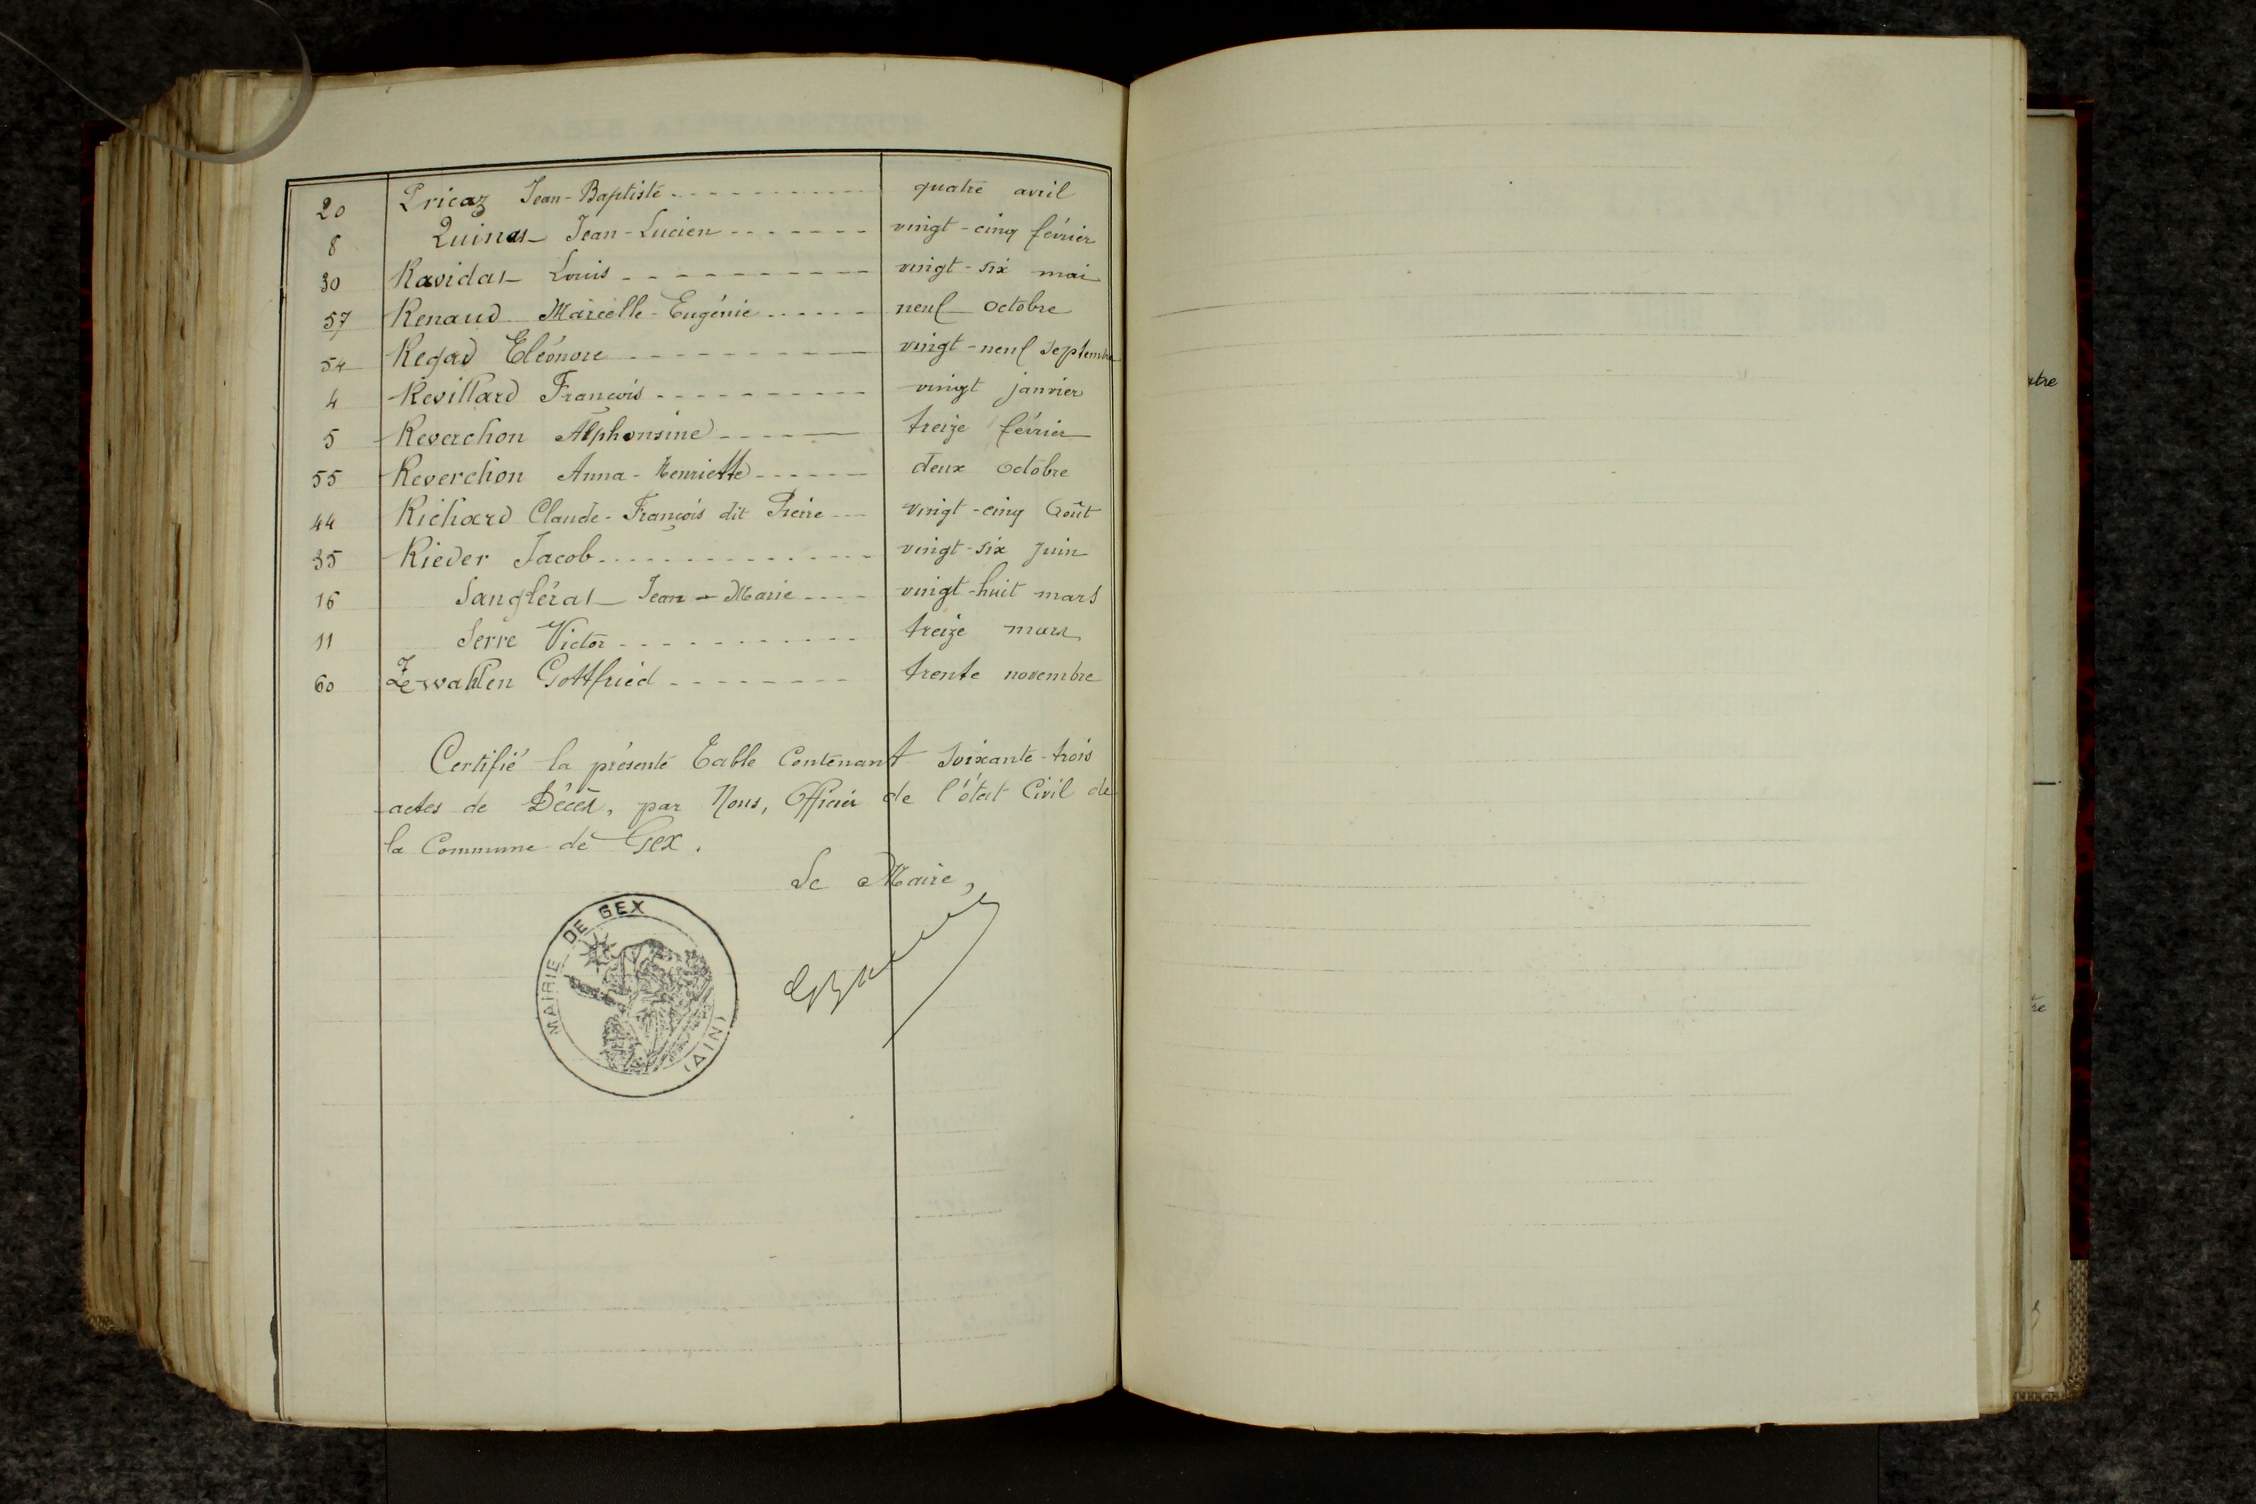 20 Pricaz Jean-Baptiste quatre avril
8 Quinat Jean-Lucien vingt-cinq février
30 Ravidat Louis vingt-six mai
57 Renaud Marcelle-Eugénie neuf octobre
54 Regad Eléonore vingt-neuf septembre
4 Revillard François vingt janvier
5 Reverchon Alphonsine treize février
55 Reverchon Anna-Henriette deux octobre
44 Richard Claude-François dit Pierre vingt-cinq Août
35 Rieder Jacob vingt-six juin
16 Sanglérat Jean-Marie vingt-huit mars
11 Serre Victor treize mars
60 Zwahlen Gottfried trente novembre
Certifié la présente Table Contenant soixante-trois
actes de Décès, par Nous, Officier de l'état Civil de
la Commune de Gex.
Le Maire,
MAIRIE DE GEX
(AIN)